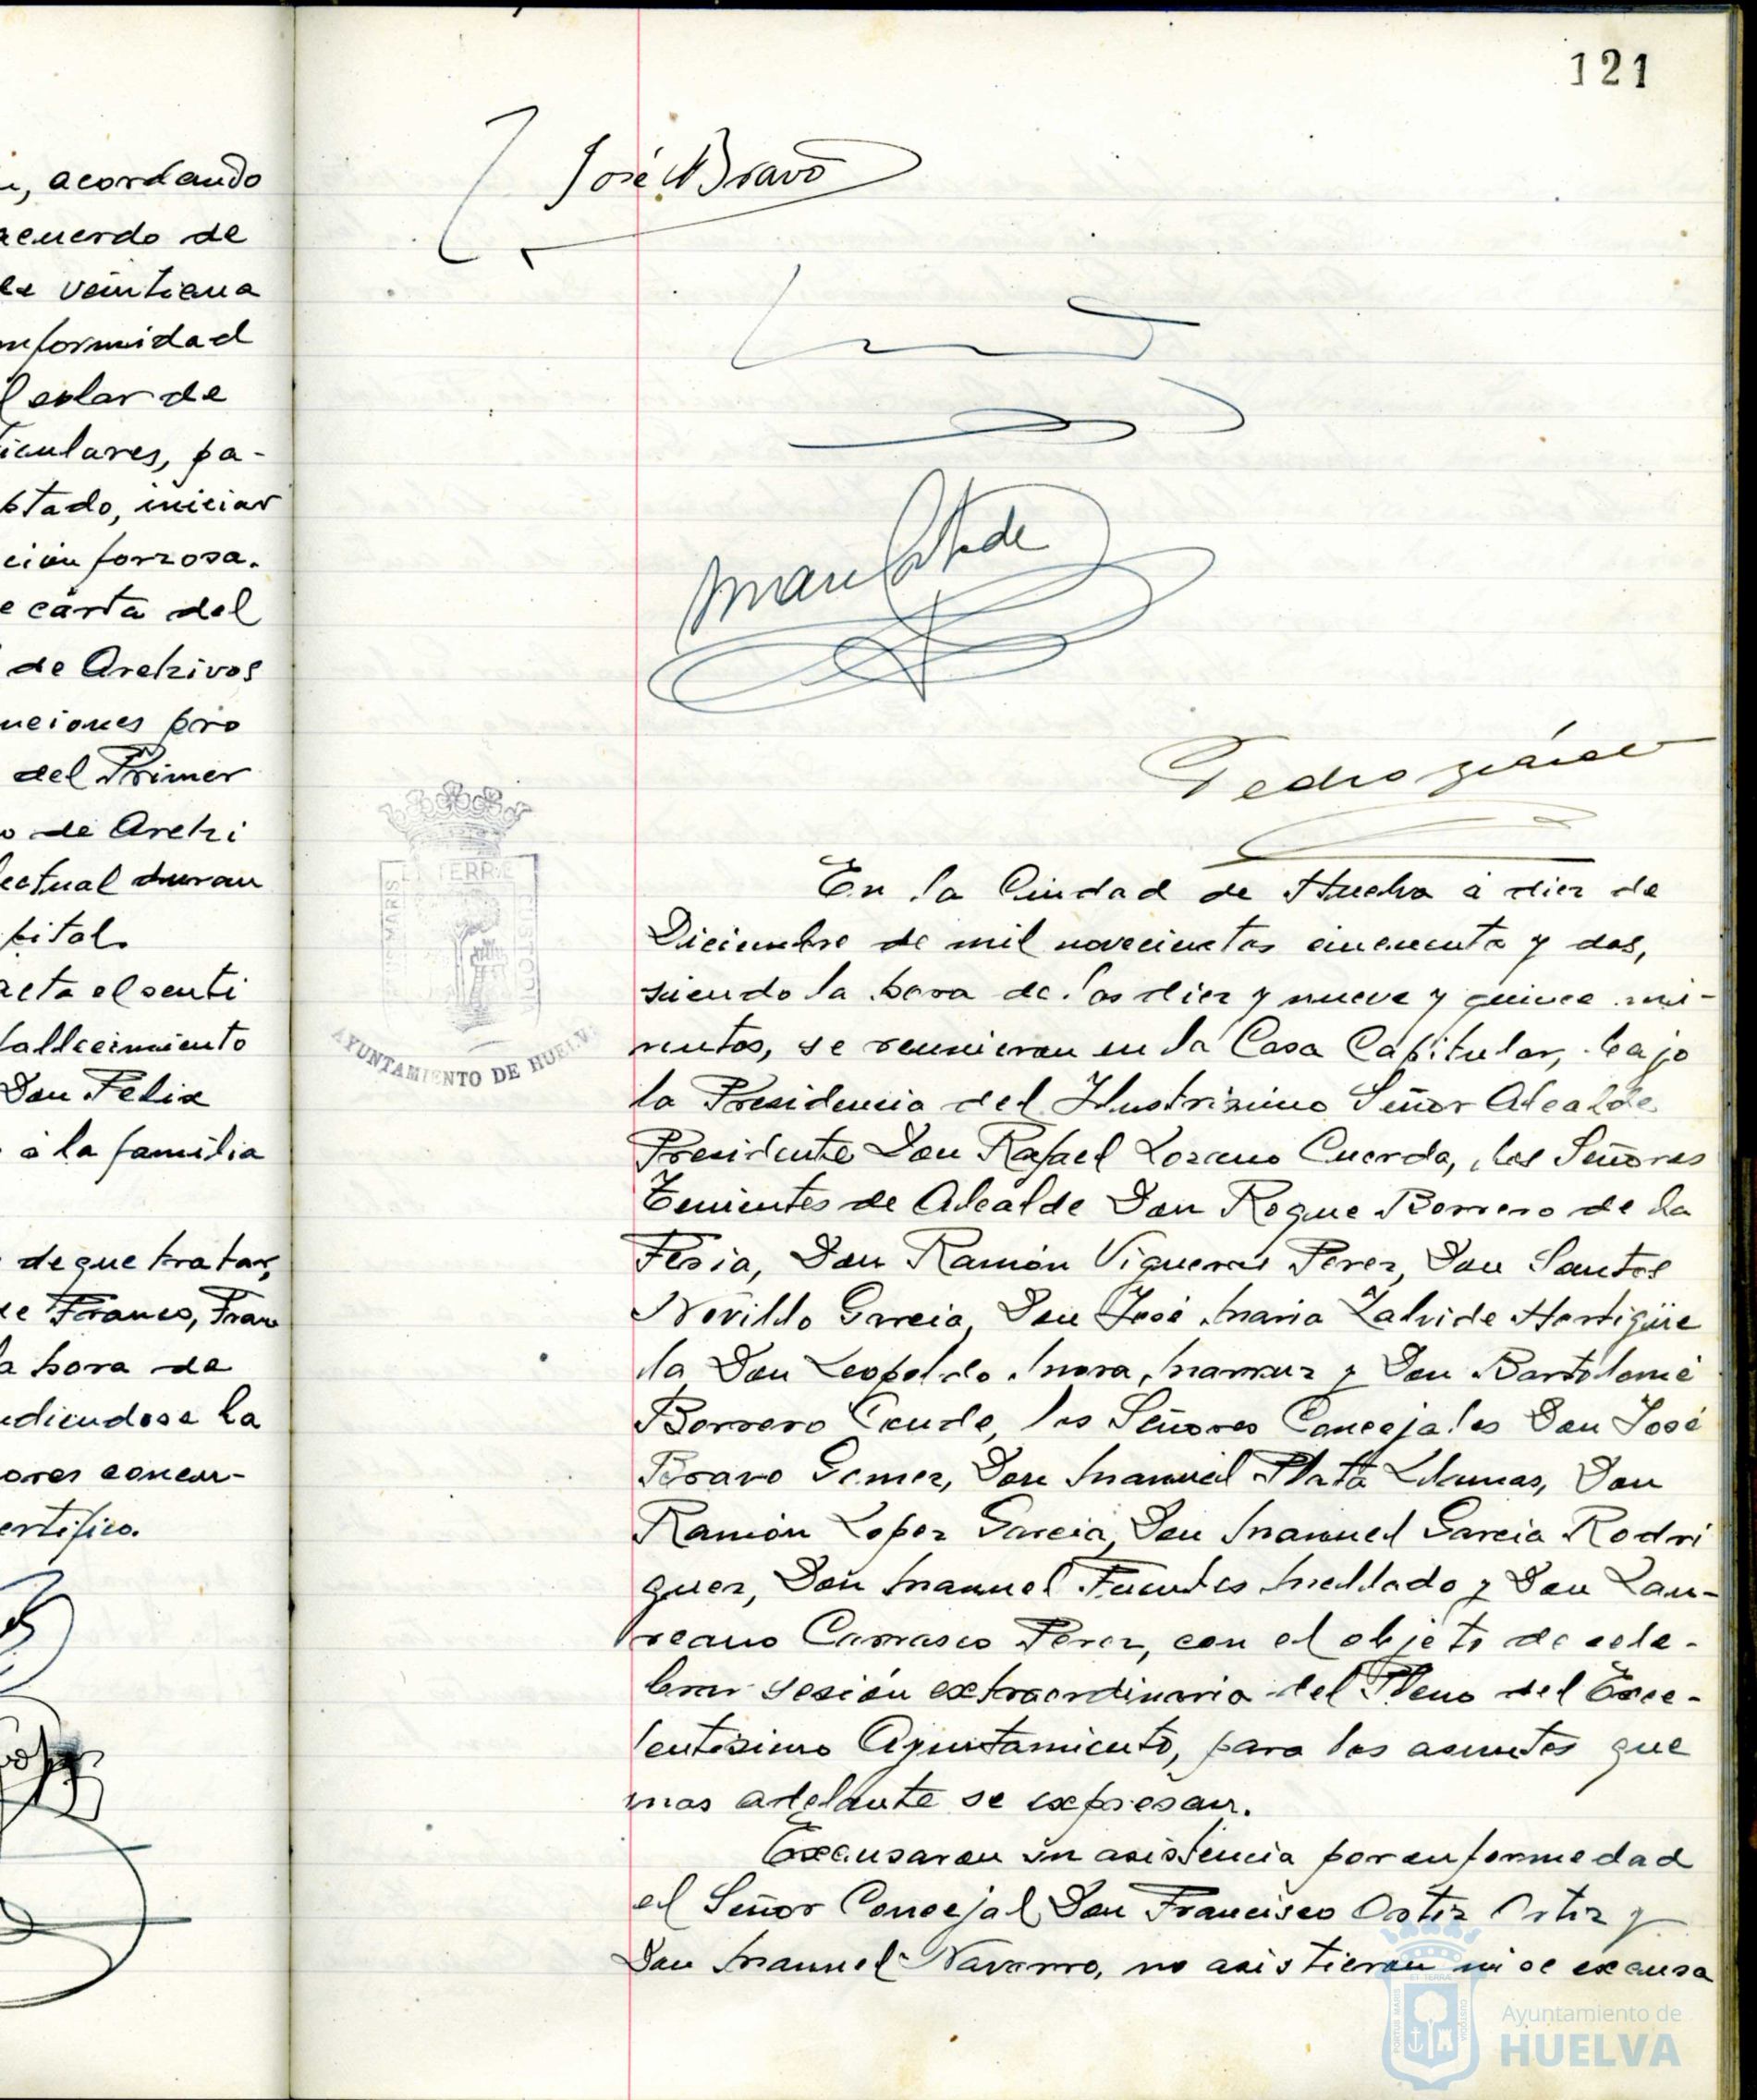 u, acordando
acuerdo de
veintiuna
nformidad
l solar de
ticulares, pa-
stado, iniciar
ción forzosa.
e carta del
de Archivos
nciones pro
del Primer
o de Archi
lectual duran
pital.
acta el senti
fallecimiento
Don Felix
a la familia
de que tratar,
ue Franco, Fran
la hora de
ndiendose la
ores concur-
ertifico.
121
José Bravo
Pedro
ET TERRÆ
MARIS
CUSTODIA
AYUNTAMIENTO DE HUELVA
En la Ciudad de Huelva a diez de
Diciembre de mil novecientos cincuenta y dos,
siendo la hora de las diez y nueve y quince mi-
nutos, se reunieron en la Casa Capitular, bajo
la Presidencia del Ilustrisimo Señor Alcalde
Presidente Don Rafael Lozano Cuerda, los Señores
Tenientes de Alcalde Don Roque Borrero de la
Feria, Don Ramón Vigueras Perez, Don Santos
Novillo Garcia, Don José Maria Zalvide Hortigüe
la Don Leopoldo Mora, y Don Bartolomé
Borrero Conde, los Señores Concejales Don José
Bravo Gomez, Don Manuel Plata Llamas, Don
Ramón Lopez Garcia, Don Manuel Garcia Rodri
guez, Don Manuel Fuentes Mellado y Don Lau-
reano Carrasco Perez, con el objeto de cele-
brar sesión extraordinaria del Pleno del Exce-
lentisimo Ayuntamiento, para los asuntos que
mas adelante se expresan.
Excusaron su asistencia por enfermedad
el Señor Concejal Don Francisco Ortiz Ortiz y
Don Manuel Navarro, no asistieron ni se excusa
PORTUS MARIS
ET TERRA
CUSTODIA
Ayuntamiento de
HUELVA